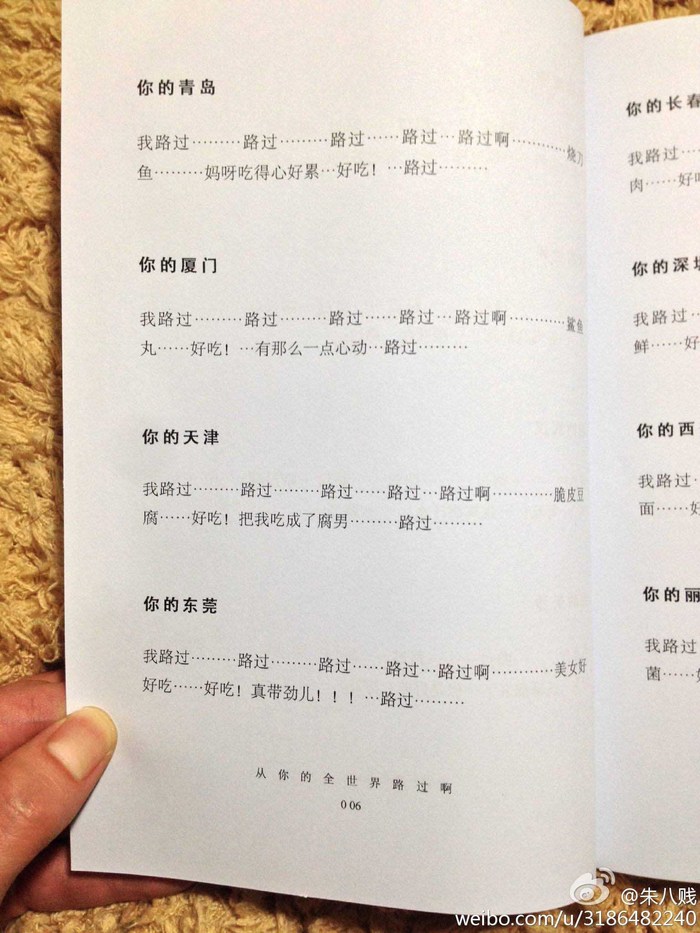 你的青岛
我路过………路过………路过……路过…路过啊…………烧刀
鱼………妈呀吃得心好累…好吃！…路过………
你的厦门
我路过………路过………路过……路过…路过啊…………鲨鱼
丸……好吃！…有那么一点心动…路过………
你的天津
我路过………路过………路过……路过…路过啊…………脆皮豆
腐……好吃！把我吃成了腐男………路过………
你的东莞
我路过………路过………路过……路过…路过啊…………美女好
好吃……好吃！真带劲儿！！！…路过………
从你的全世界路过啊
006
你的长春
我路过……
肉……好吃
你的深圳
我路过…
鲜……好
你的西
我路过…
面……好
你的丽
我路过
菌……好
@朱八贱
weibo.com/u/3186482240